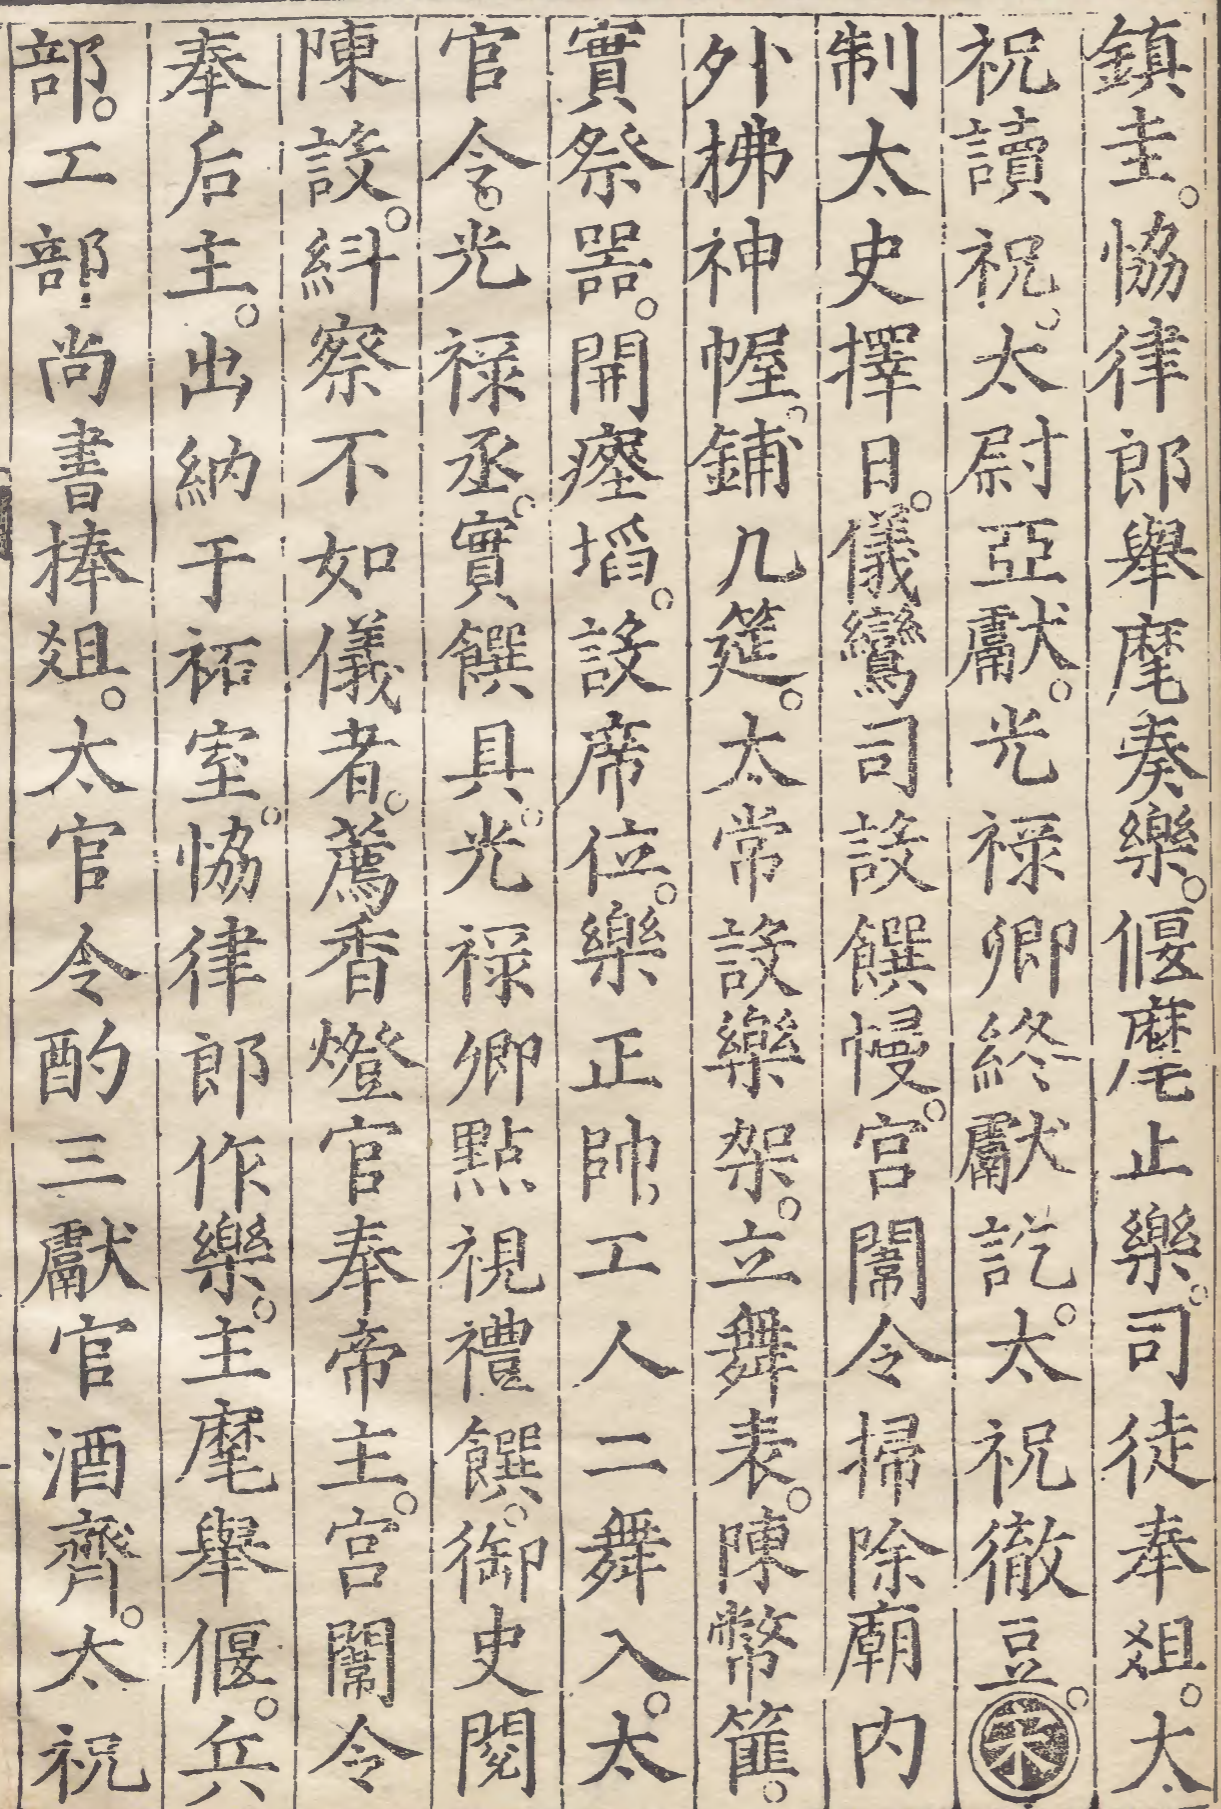 鎮圭。恊律郎舉麾奏樂。偃麾止樂。司徒奉爼。太
祝讀祝。太尉亞獻。光禄卿終獻訖。太祝徹豆。宋
制太史擇日。儀鸞司設饌幔。宫闈令掃除廟内
外拂神幄。鋪几筵。太常設樂架。立舞表。陳幣篚。
實祭器。開瘞埳。設席位。樂正帥工人二舞入。太
官令。光禄丞。實饌具。光禄卿點視禮饌。御史閱
陳設。糾察不如儀者。薦香燈官奉帝主。宫闈令
奉后主。出納于祏室。恊律郎作樂。主麾舉偃。兵
部。工部尚書捧爼。太官令酌三獻官酒齊。太祝